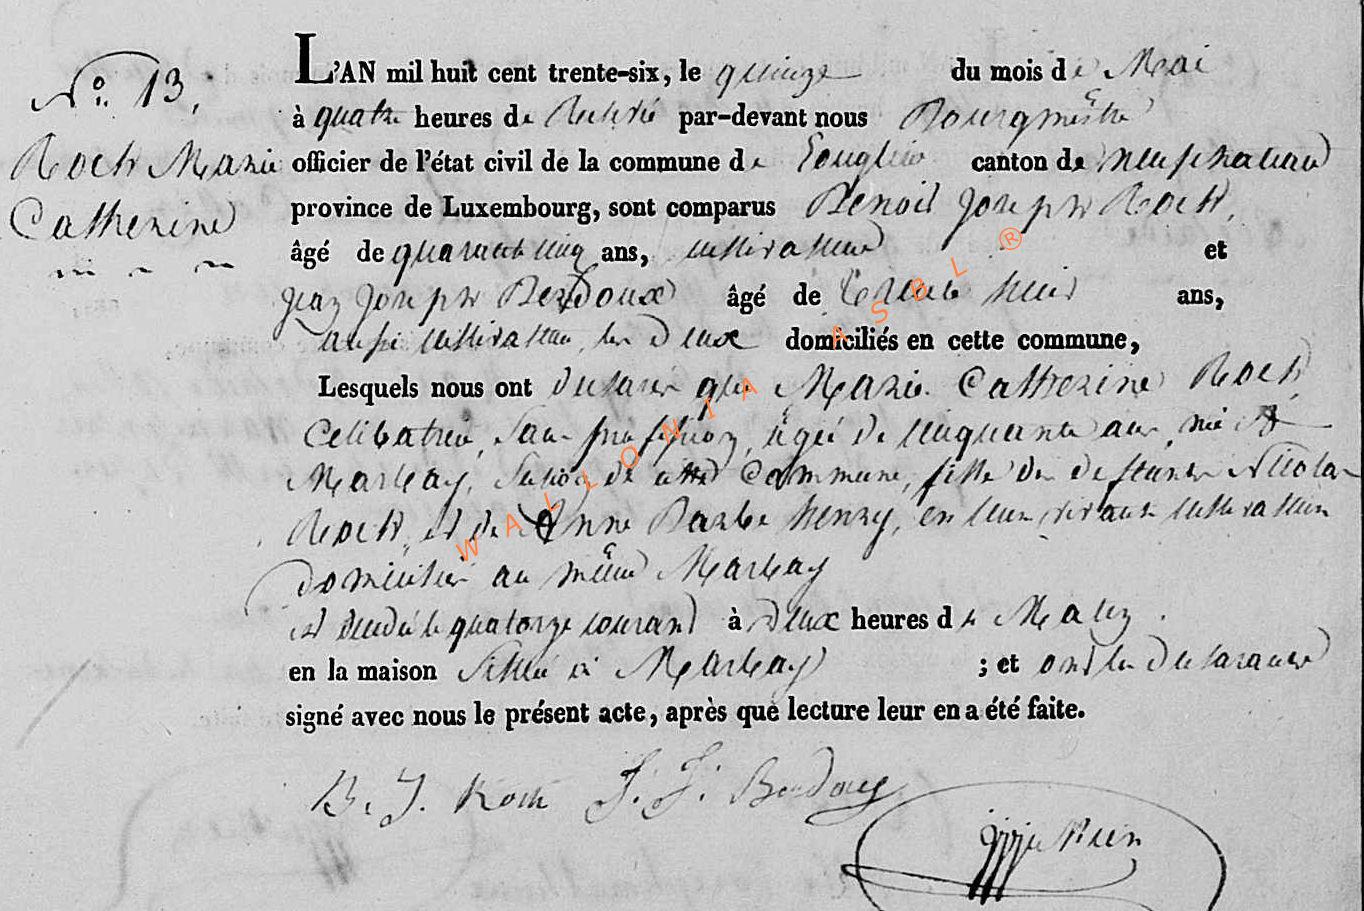 N.° 13.
Roch Marie
Catherine
L'AN mil huit cent trente-six, le quinze du mois de Mai
à quatre heures de Relevée par-devant nous Bourgmêstre
officier de l'état civil de la commune de Longlier canton de neufchateau
province de Luxembourg, sont comparus Benoit Joseph Roch,
âgé de quarante cinq ans, cultivateur et
Jean Joseph Berdoux âgé de trente huit ans,
aussi cultivateur, les deux domiciliés en cette commune,
Lesquels nous ont declaré que Marie Catherine Roch
Celibataire, sans profession, agée de cinquante ans, née à
Marbay, section de cette Commune, fille des defunts Nicolas
Roch, et de Anne Barbe henry, en leur vivant cultivateurs
domiciliés au même Marbay
est decedée le quatorze courant à deux heures de Matin
en la maison située à Marbay ; et ont les declarants
signé avec nous le présent acte, après que lecture leur en a été faite.
B. J. Roch J. J. Berdoux
WALLONIA ASBL ®